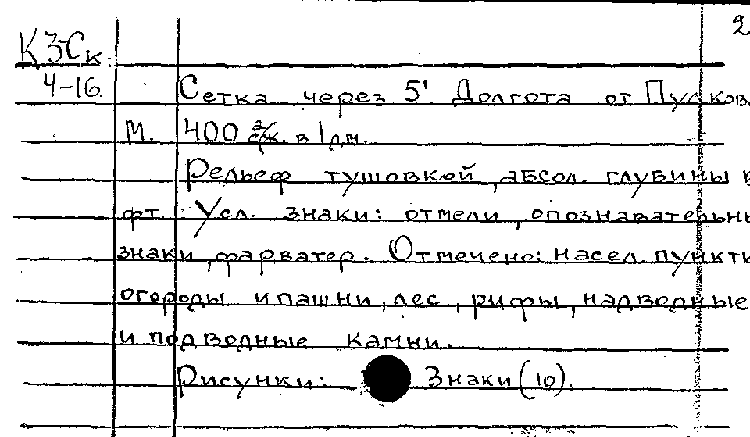 2
К3-Ск
4-16. Сетка через 5'. Долгота от Пулков
М. 400 саж. в 1 дм.
Рельеф тушовкой, абсол. глубины в
фт. Усл. знаки: отмели, опознавательн
знаки, фарватер. Отмечено: насел. пункты
огороды и пашни, лес, рифы, надводные
и подводные камни.
Рисунки: Знаки (10).